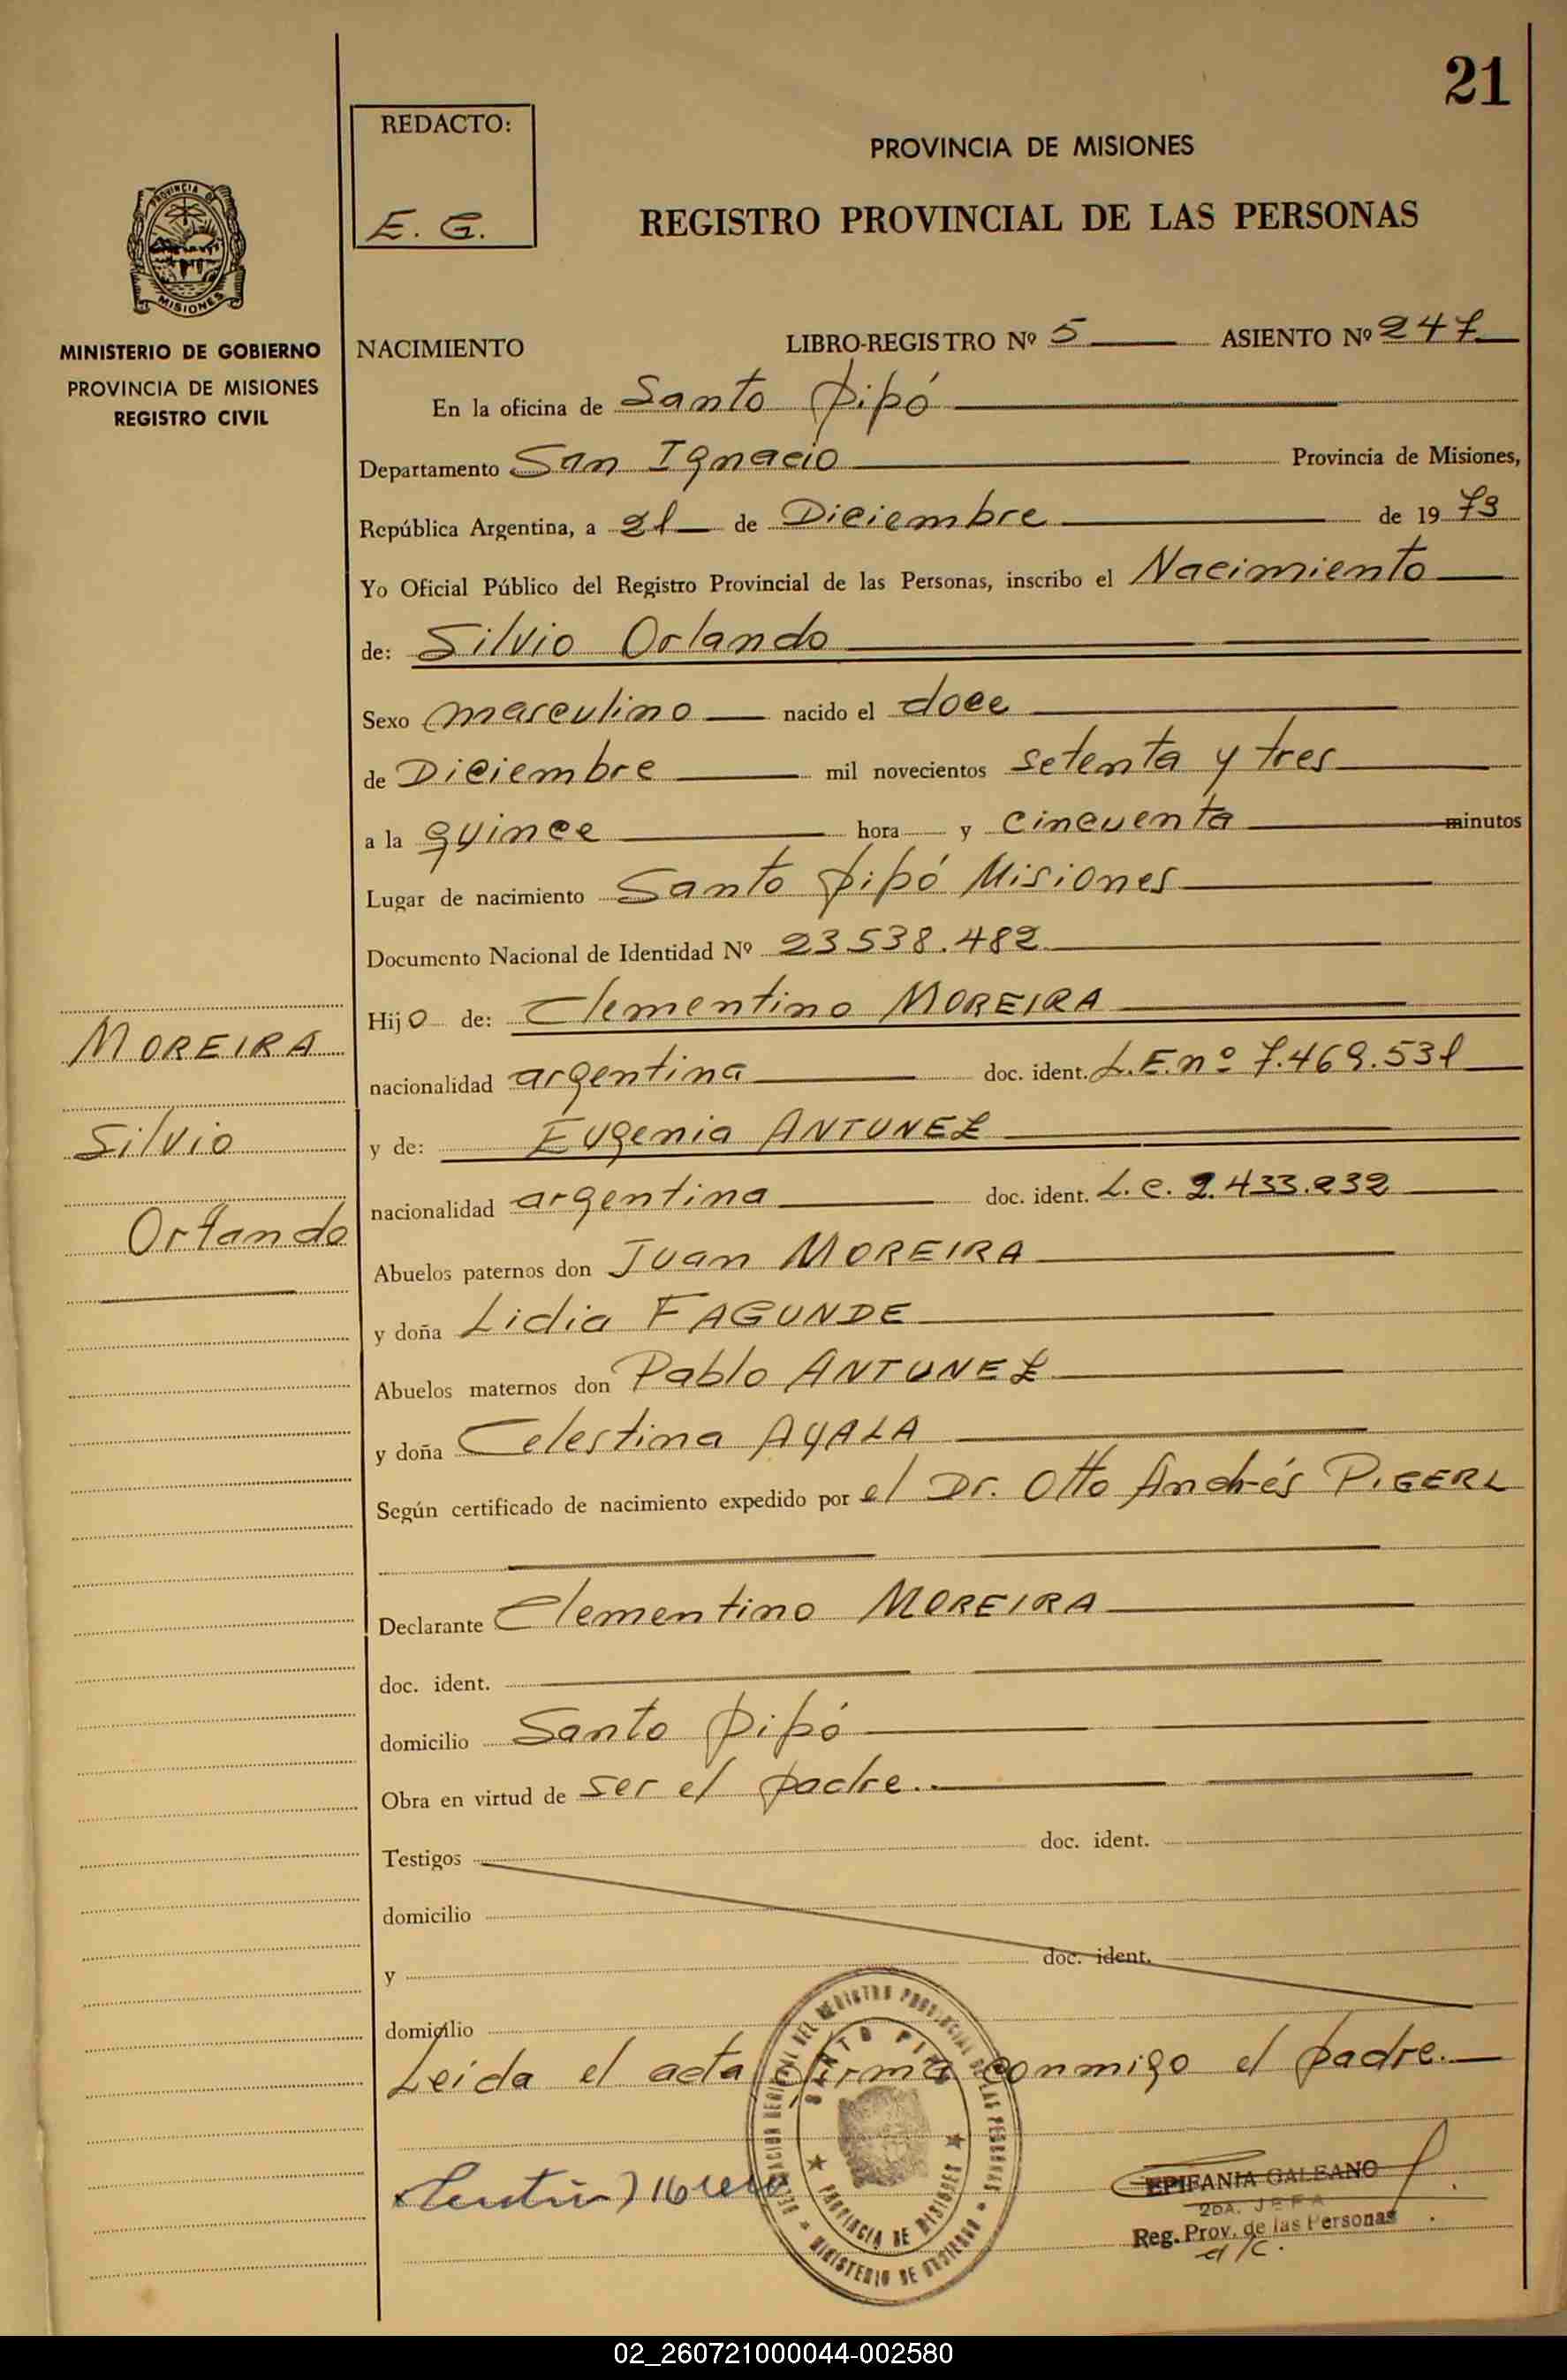 21
REDACTO:
E. G.
PROVINCIA DE MISIONES
REGISTRO PROVINCIAL DE LAS PERSONAS
PROVINCIA DE
MISIONES
MINISTERIO DE GOBIERNO
PROVINCIA DE MISIONES
REGISTRO CIVIL
NACIMIENTO LIBRO-REGISTRO Nº 5 ASIENTO Nº 247
En la oficina de Santo Pipó
Departamento San Ignacio Provincia de Misiones,
República Argentina, a 21 de Diciembre de 19 73
Yo Oficial Público del Registro Provincial de las Personas, inscribo el Nacimiento
de: Silvio Orlando
Sexo masculino nacido el doce
de Diciembre mil novecientos setenta y tres
a la quince hora y cincuenta minutos
Lugar de nacimiento Santo Pipó Misiones
Documento Nacional de Identidad Nº 23538.482
Hijo de: Clementino MOREIRA
nacionalidad argentina doc. ident. L.E.nº 7.469.531
y de: Eugenia ANTUNEZ
nacionalidad argentina doc. ident. L.C. 2.433.232
Abuelos paternos don Juan MOREIRA
y doña Lidia FAGUNDE
Abuelos maternos don Pablo ANTUNEZ
y doña Celestina AYALA
Según certificado de nacimiento expedido por el Dr. Otto Andrés PIGERL
Declarante Clementino MOREIRA
doc. ident.
domicilio Santo Pipó
Obra en virtud de ser el padre.
Testigos doc. ident.
domicilio
y doc. ident.
domicilio
Leida el acta firma conmigo el padre.
MOREIRA
Silvio
Orlando
DELEGACION SECCIONAL DEL REGISTRO PROVINCIAL DE LAS PERSONAS
SANTO PIPO
PROVINCIA DE MISIONES
MINISTERIO DE GOBIERNO
EPIFANIA GALEANO
2DA. JEFA
Reg. Prov. de las Personas
a/c.
02_260721000044-002580